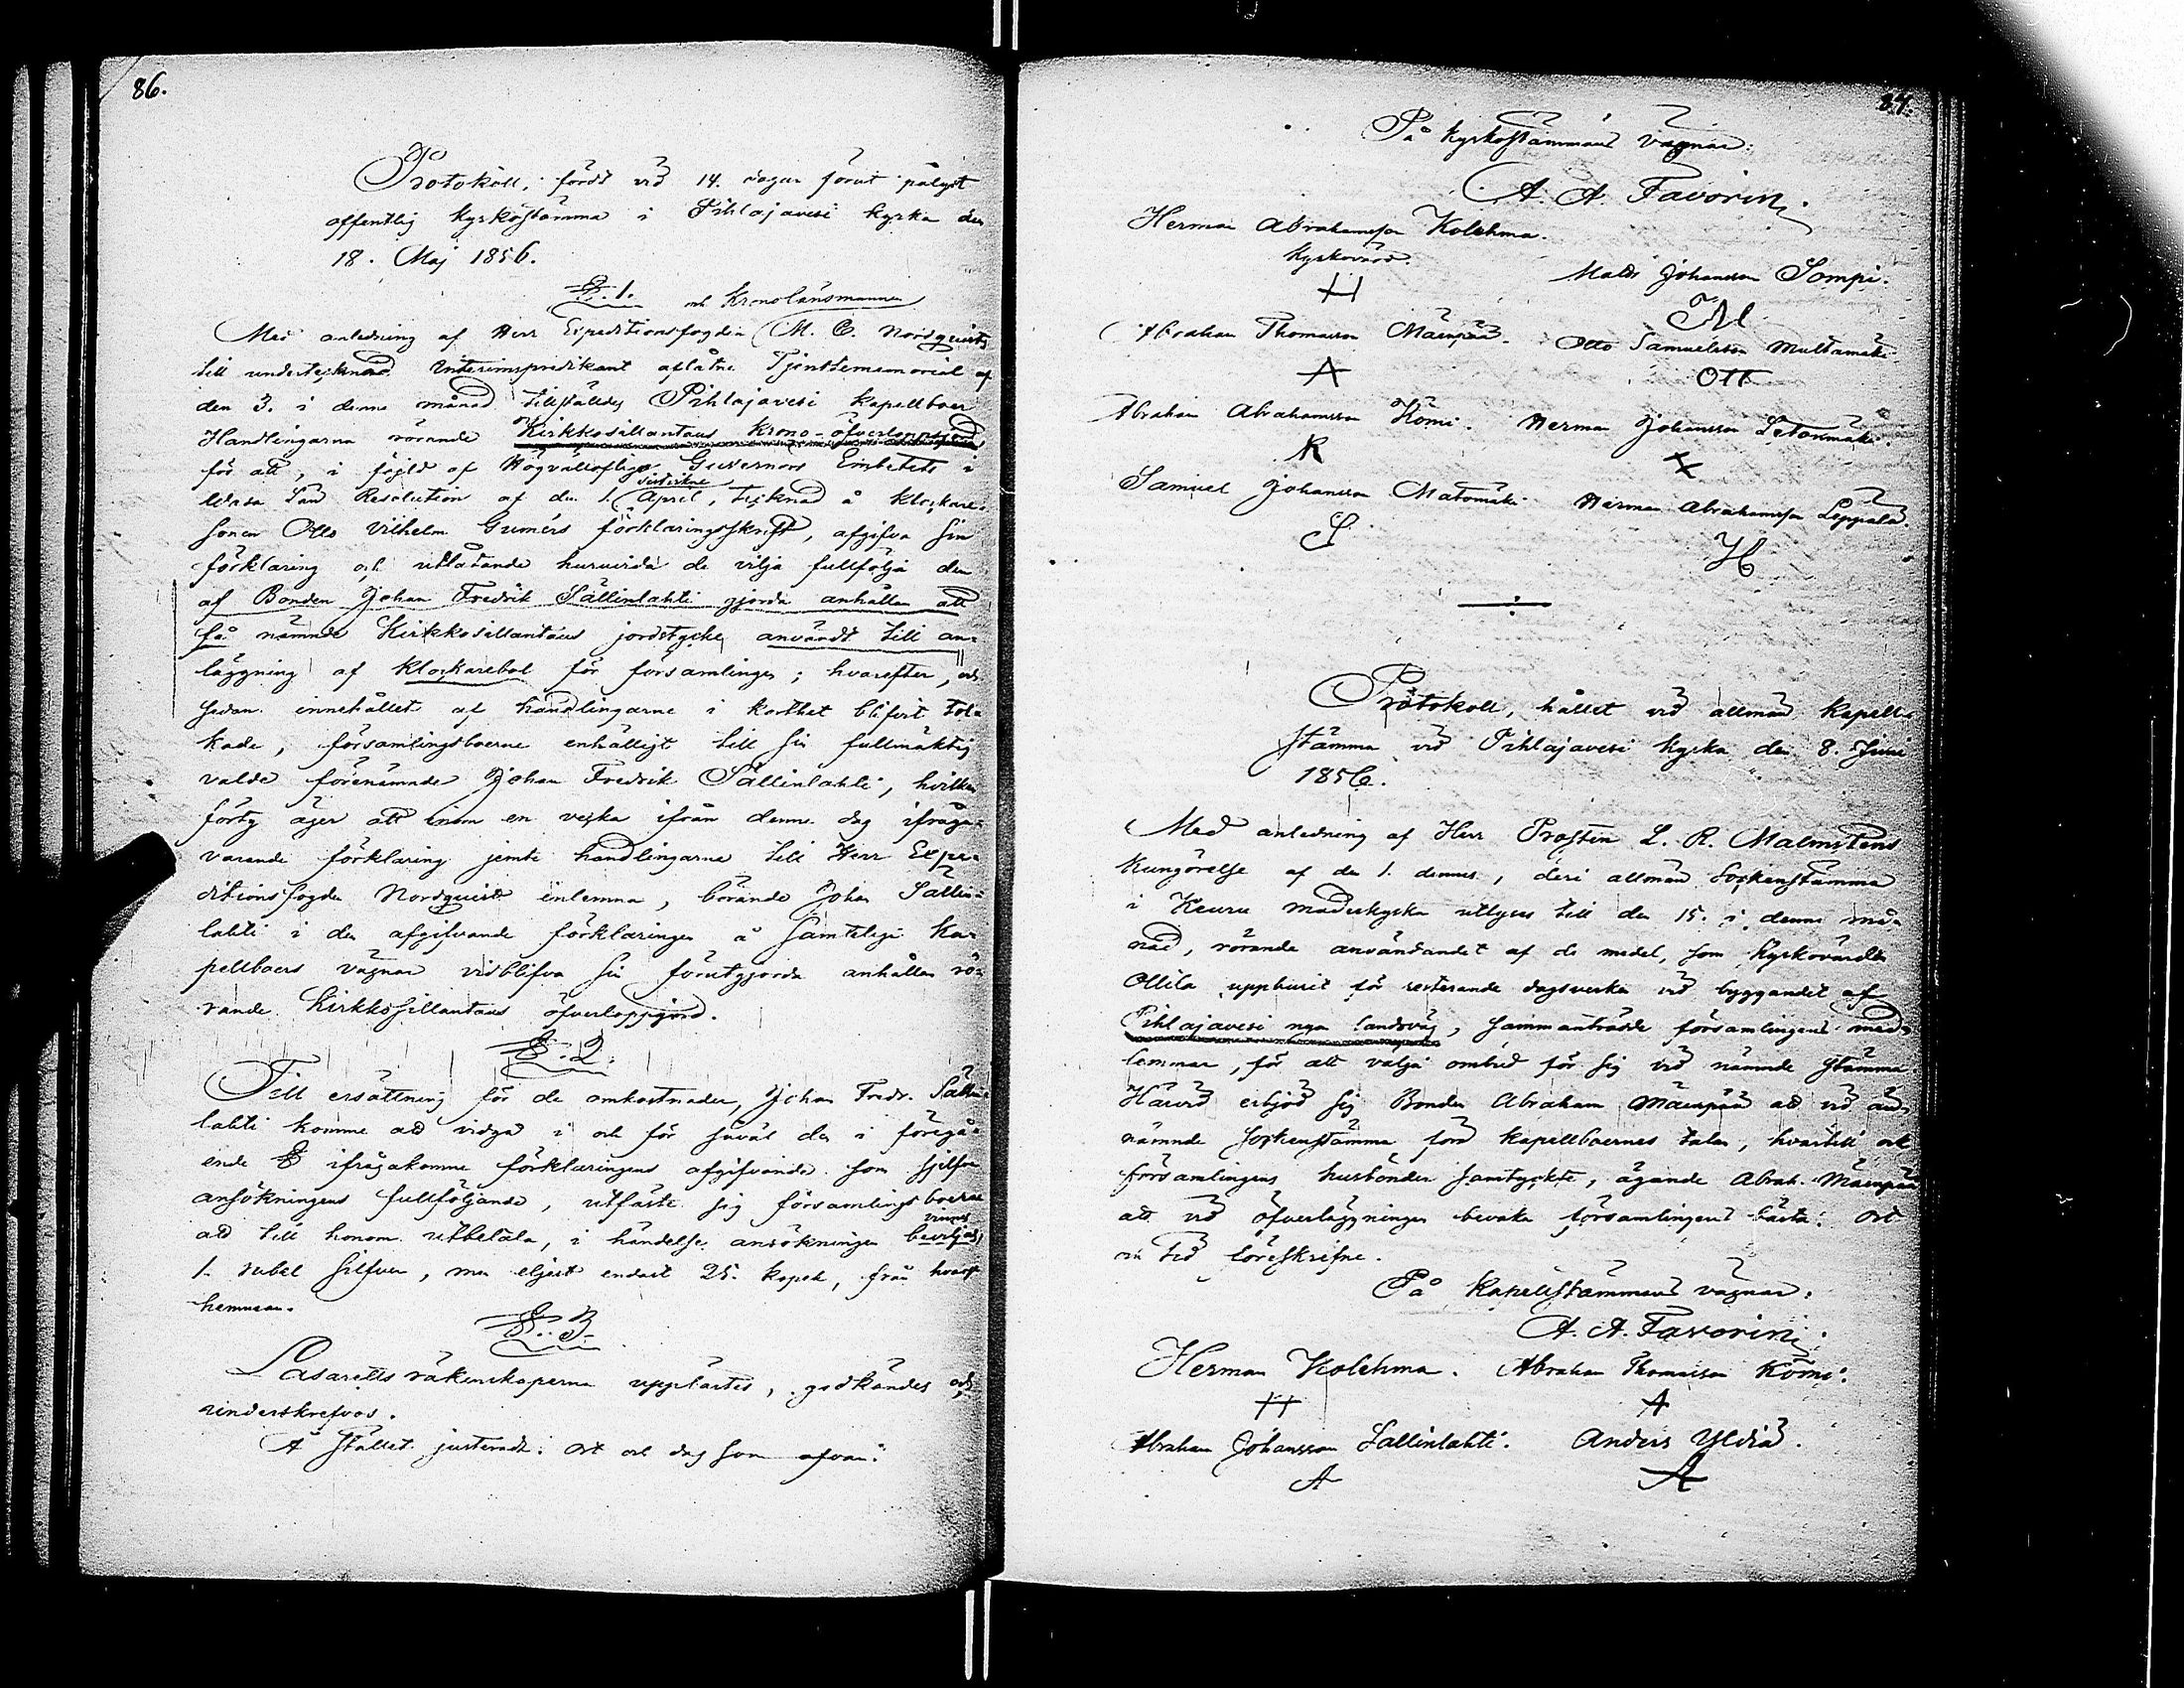 86.
Protokoll, fördt vid 14. dagar förut pålyst
offentlig kyrkostämma i Pihlajavesi kyrka den
18. Maj 1856.
§. 1.
och Kronolänsmannen
Med anledning af Herr Expeditionsfogden M. C. Nordquists
till undertecknad Interimspredikant aflåtne Tjenstememorial af
den 3. i denne månad tillställdes Pihlajavesi kapellboer
Handlingarna rörande Kirkkosillantaus krono-öfverloppsjord
för att, i följd af Högvällofliga Guvernörs Embetets i
sistvikne
Resolution af den 1. April, tecknad å klockare-
sonen Otto Vilhelm Gumérs förklaringsskrift, afgifva sin
förklaring och utlåtande huruvida de vilja fullfölja den
af Bonden Johan Fredrik Sällinlahti gjorda anhållan att
få nämnde Kirkkosillantaus jordstycke användt till an-
läggning af klockarebol för församlingen; hvarefter, och
sedan innehållet af handlingarne i korthet blifvit tol-
kade, församlingsboerne enhälligt till sin fullmäktig
valde förenämnde Johan Fredrik Sällinlahti, hvilken
förty äger att inom en vecka ifrån denne dag ifråga-
varande förklaring jemte handlingarne till Herr Expe-
ditionsfogden Nordquist inlemna, börande Johan Sällin-
lahti i den afgifvande förklaringen å samtelige ka-
pellboers vägnar vidblifva sin förutgjorda anhållan rö-
rande Kirkkosillantaus öfverloppsjord.
§. 2.
Till ersättning för de omkostnader, Johan Fredr. Sällin-
lahti komme att vidgå i och för såväl den i föregå-
ende § ifrågakomne förklaringens afgifvande som sjelfva
ansökningens fullföljande, utfäste sig församlingsboerne
vinnes
att till honom utbetala, i händelse ansökningen beviljas,
1. rubel silfver, men eljest endast 25. kopek, från hvarje
hemman.
§. 3.
Lasaretts räkenskaperna upplästes, godkändes och
underskrefvos.
På stället justeradt: ort och dag som ofvan:
87.
På kyrkostämmans vägnar:
A. A. Favorin.
Herman Abrahamsson Kolehma.
kyrkovärd.
H
Matts Johansson Sompi.
M
Abraham Thomasson Mäenpää. Otto Samuelsson Multamäki
A OTT
Abraham Abrahamsson Kömi. Herman Johansson Letonmäki.
K X
Samuel Johansson Matomäki Herman Abrahamsson Leppälä.
S H
Protokoll, hållet vid allmän kapell-
stämma vid Pihlajavesi kyrka den 8. Juni
1856.
Med anledning af Herr Prosten L. R. Malmstens
Kungörelse af den 1. dennes, deri allmän Sockenstämma
i Keuru moderkyrka utlyses till den 15. i denne må-
nad, rörande användandet af de medel, som kyrkovärden
Ollila uppburit för resterande dagsverken vid byggandet af
Pihlajavesi nya landsväg, sammanträdde församlingens med-
lemmar, för att välja ombud för sig vid nämnde stämma.
Härvid erbjöd sig Bonden Abraham Mäenpää att vid
nämnde sockenstämma föra kapellboernes talan, hvartill ock
församlingens husbönder samtyckte, ägande Abrah. Mäenpää
att vid öfverläggningen bevaka församlingens bästa. Ort
och tid föreskrifne.
På kapellstämmans vägnar:
A. A. Favorin.
Herman Kolehma. Abraham Thomasson Kömi.
H A
Abraham Johansson Sallinlahti. Anders Yldiä.
A A